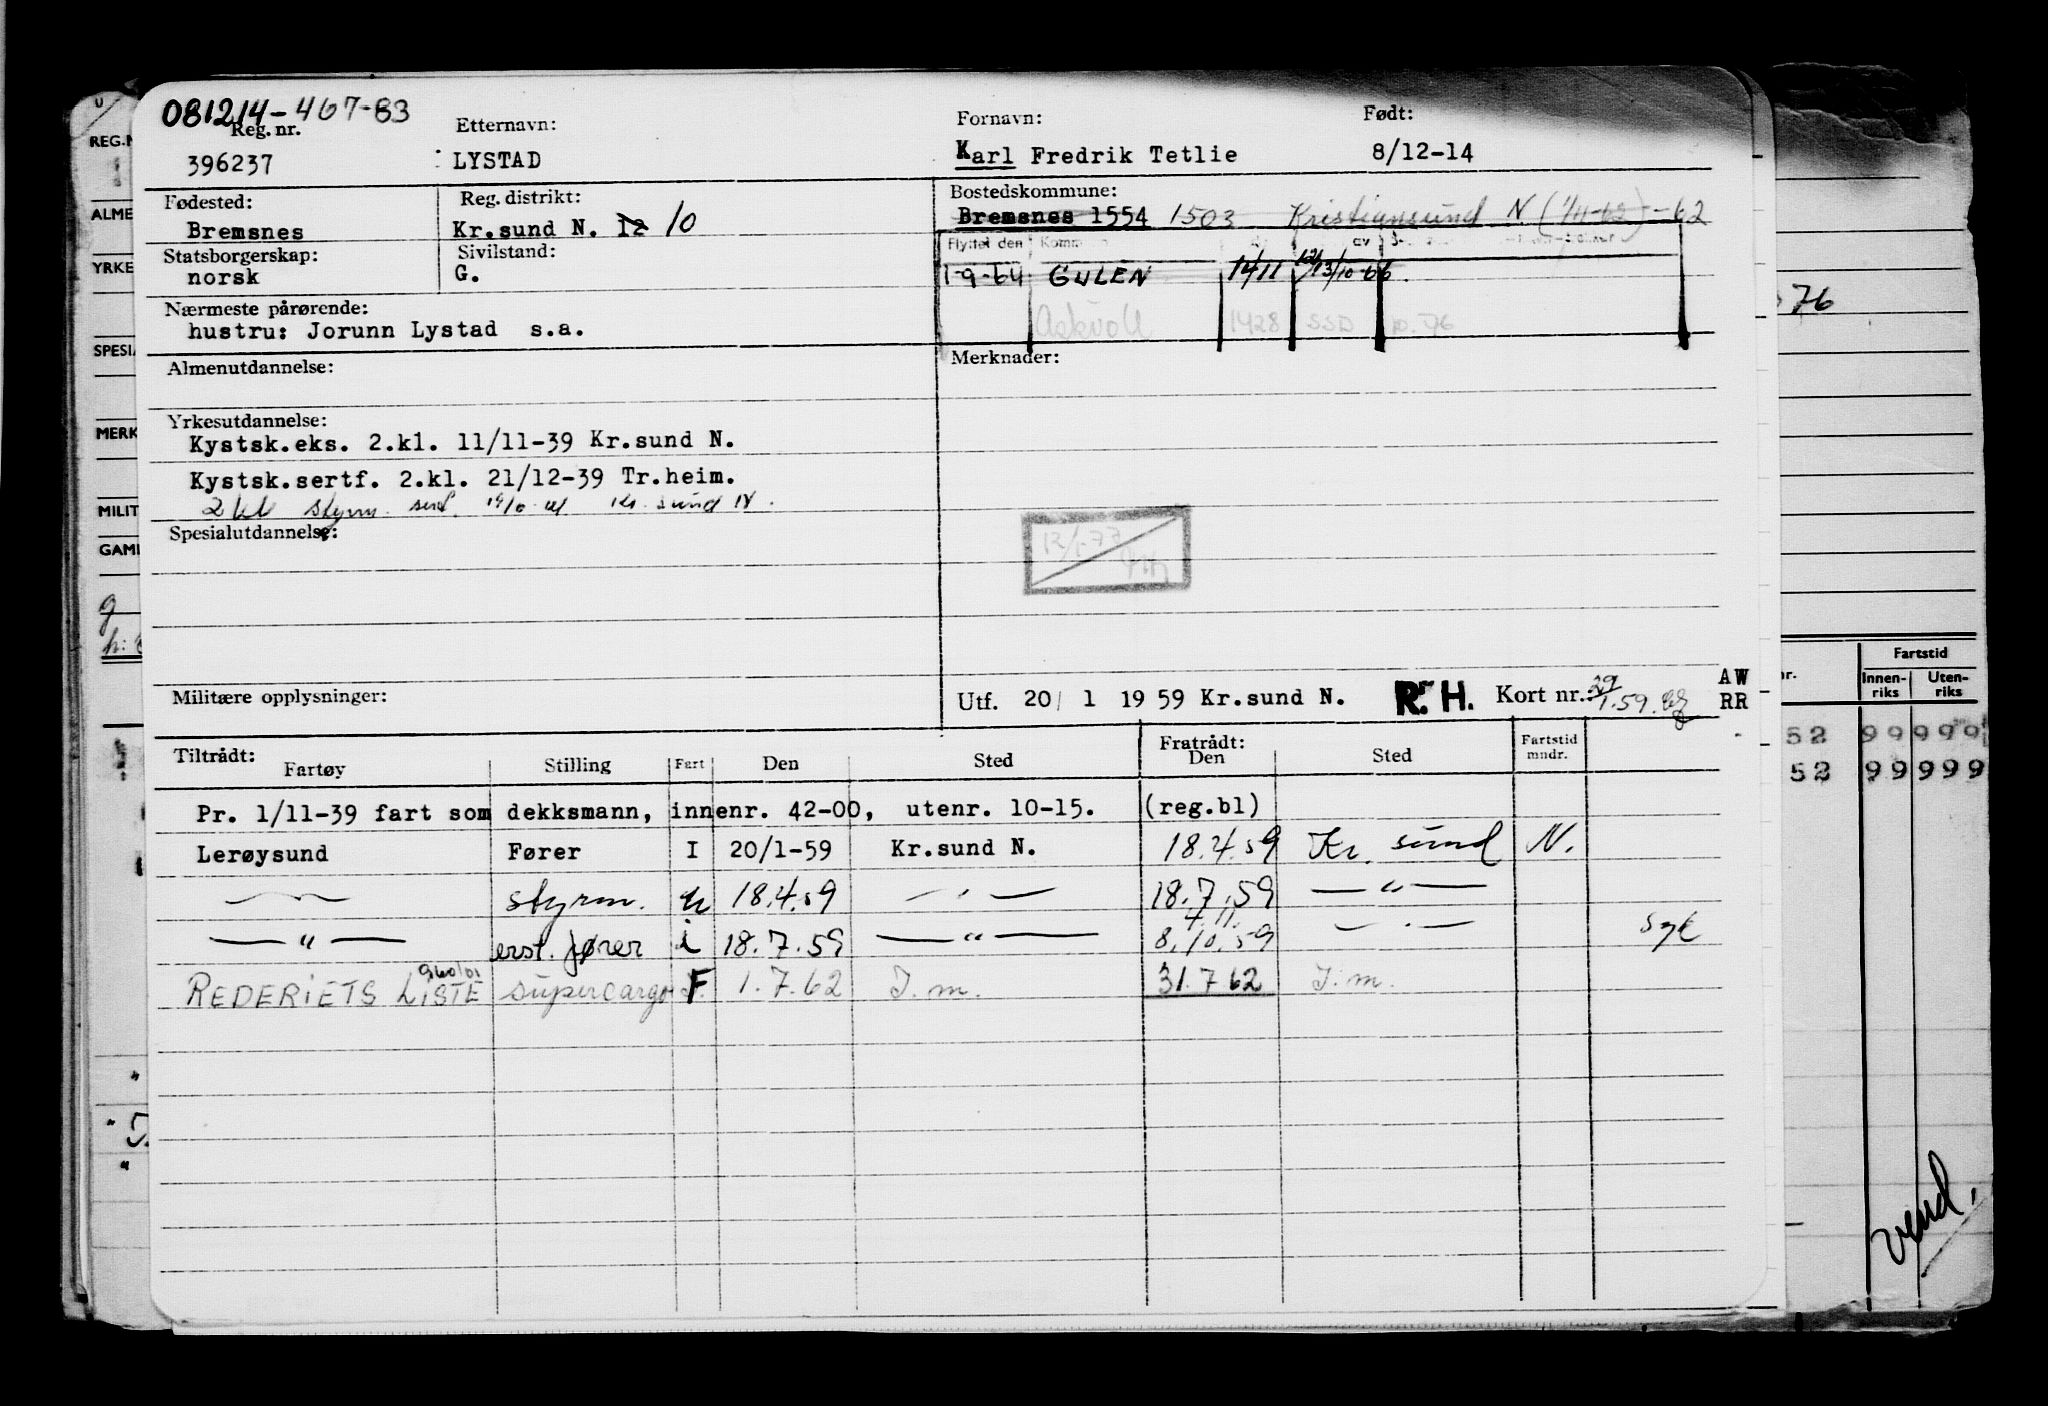 081214-467-83
Reg. nr. Etternavn: Fornavn: Født:
396237 LYSTAD Karl Fredrik Tetlie 8/12-14
Fødested: Reg. distrikt: Bostedskommune:
Bremsnes Kr.sund N. 12 10 Bremsnes 1554 1503 Kristiansund N (1/11-62)-62
Statsborgerskap: Sivilstand: Flyttet den
norsk G. 1-9-64 GULEN 1411 13/10-66.
Nærmeste pårørende:
hustru: Jorunn Lystad s.a. Askvoll 1428 SSD 10.76
Almenutdannelse: Merknader:
Yrkesutdannelse:
Kystsk.eks. 2.kl. 11/11-39 Kr.sund N.
Kystsk.sertf. 2.kl. 21/12-39 Tr.heim.
2 kl styrm. sert. Kr. sund N.
Spesialutdannelse:
12/1-77
Militære opplysninger: Utf. 20/ 1 19 59 Kr.sund N. R.H. Kort nr. 29/1.59. AW
RR
Tiltrådt: Fratrådt:
Fartøy Stilling Fart Den Sted Den Sted Fartstid mndr.
Pr. 1/11-39 fart som dekksmann, innenr. 42-00, utenr. 10-15. (reg.bl)
Lerøysund Fører I 20/1-59 Kr.sund N. 18.4.59 Kr. sund N.
styrm. u 18.4.59 — " — 18.7.59 — " —
4.11.
— " — erst. fører i 18.7.59 — " — 8.10.59 — " — syk
REDERIETS LISTE supercargo F 1.7.62 I.m. 31.7.62 I.m.
REG.N
ALME
YRKE
SPESIA
MERK
MILIT
GAML
g
76
Fartstid
Innen-riks Uten-riks
52 99 999
52 99 999
vend.